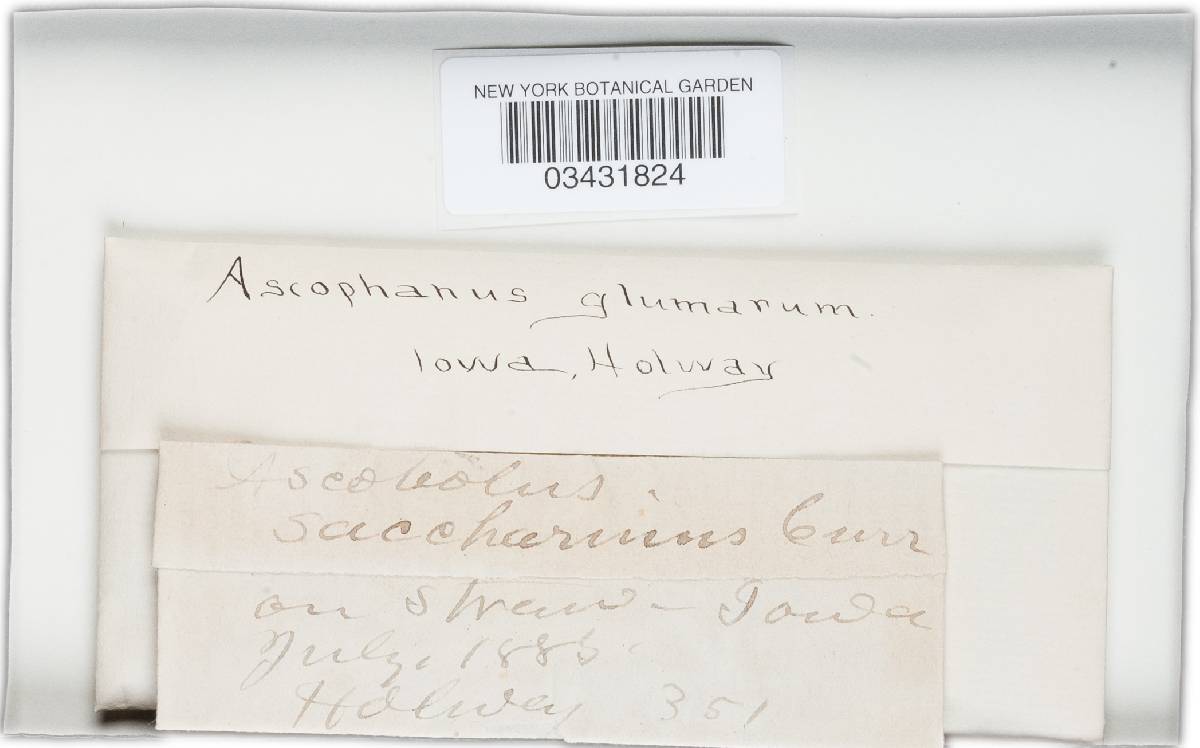 NEW YORK BOTANICAL GARDEN
03431824
Ascophanus glumarum.
Iowa, Holway
Ascobolus.
saccharinus Curr
on straw - Iowa
July, 1885.
Holway 351